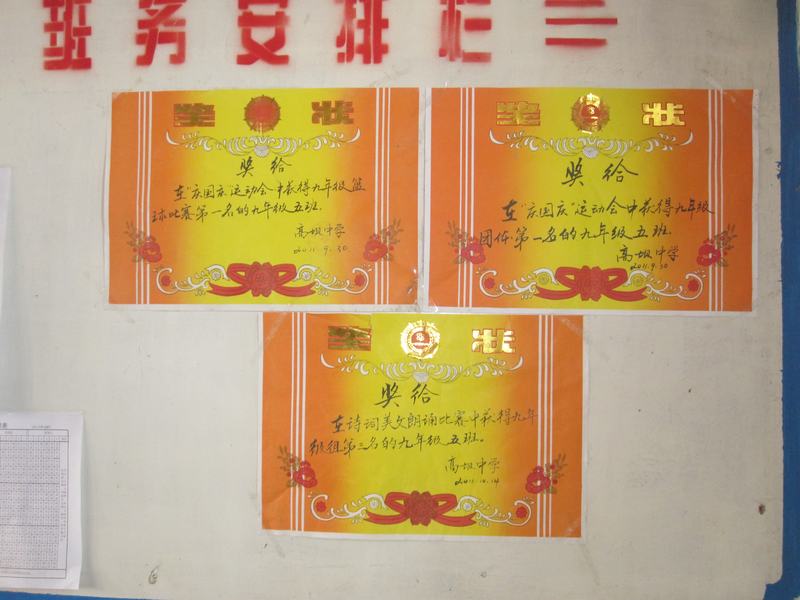 班务安排栏三
奖状
奖给
在"庆国庆"运动会中获得九年级篮
球比赛第一名的九年级五班.
高坝中学
2011.9.30
奖状
奖给
在"庆国庆"运动会中获得九年级
团体第一名的九年级五班.
高坝中学
2011.9.30
奖状
奖给
在诗词美文朗诵比赛中获得九年
级组第三名的九年级五班。
高坝中学
2011.10.14